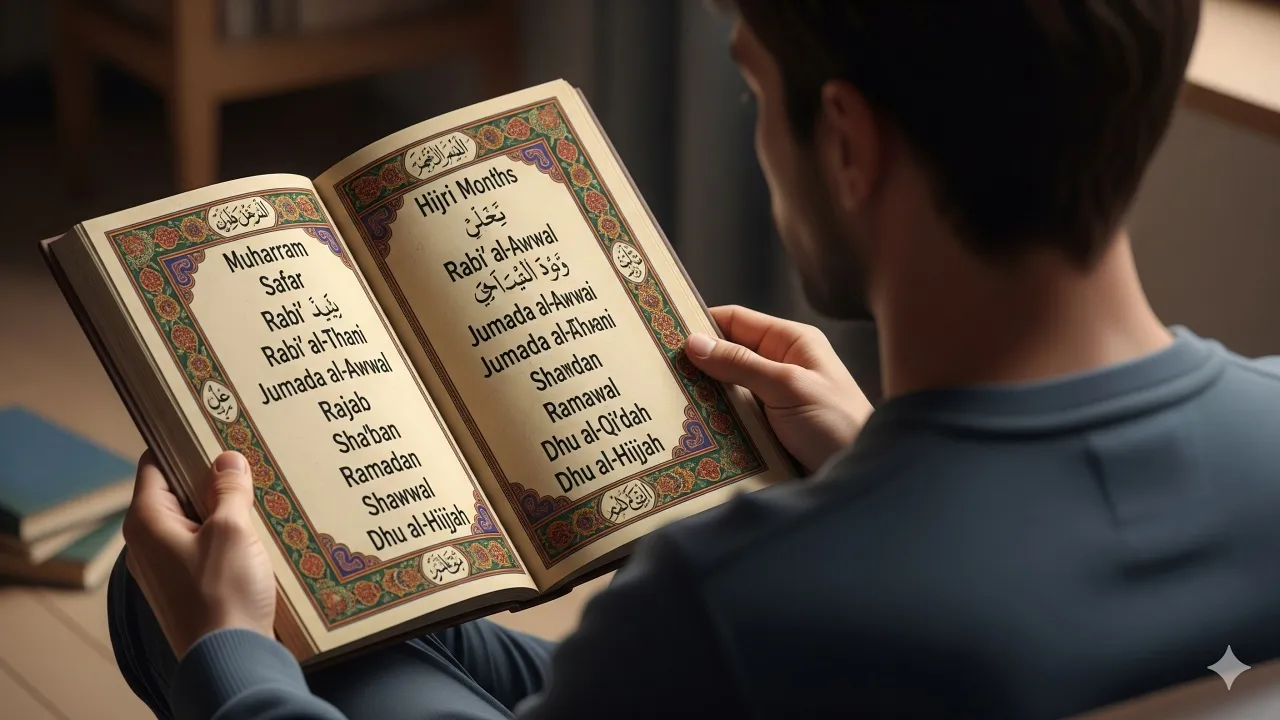 Muharram
Safar
Rabi'
Rabi' al-Thani
Jumada al-Awwal
Rajab
Sha'ban
Ramadan
Shawwal
Dhu al-Hijjah
Hijri Months
Rabi' al-Awwal
Jumada al-Awwal
Jumada
Shawdan
Ramawal
Dhu al-Qi'dah
Dhu al-Hijjah